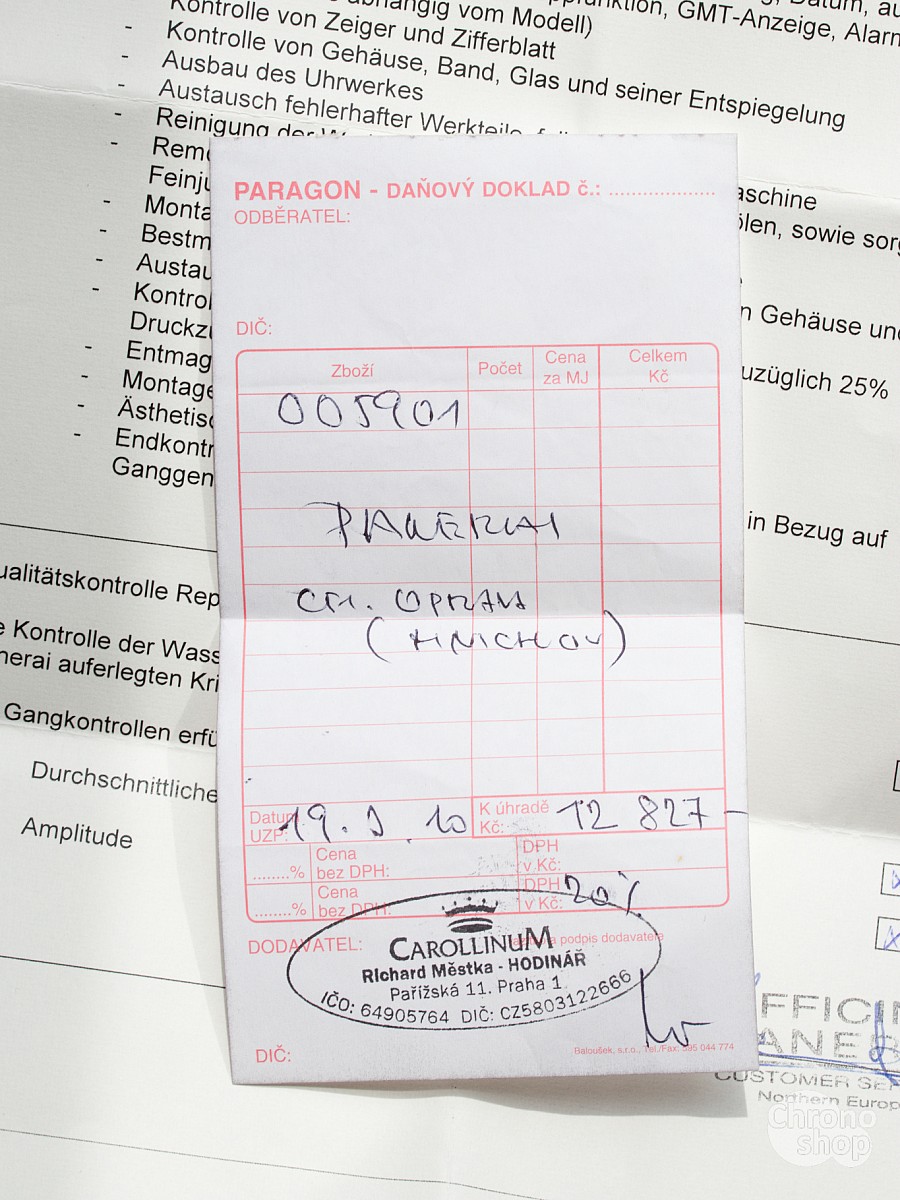 , Datum, au
abhängig vom Modell)
pfunktion, GMT-Anzeige, Alarm
Kontrolle von Zeiger und Zifferblatt
- Kontrolle von Gehäuse, Band, Glas und seiner Entspiegelung
- Ausbau des Uhrwerkes
- Austausch fehlerhafter Werkteile
- Reinigung der
- Rem
Feinju
aschine
- Monta
ölen, sowie sorg
- Bestm
- Austau
- Kontrol
n Gehäuse und
Druckzu
- Entmag
uzüglich 25%
- Montage
- Ästhetisc
- Endkontr
Ganggen
in Bezug auf
ualitätskontrolle Rep
e Kontrolle der Wass
nerai auferlegten Kri
Gangkontrollen erfü
Durchschnittliche
Amplitude
PARAGON - DAŇOVÝ DOKLAD č.: ...................
ODBĚRATEL:
DIČ:
Zboží Počet Cena za MJ Celkem Kč
005901
PANERAI
OPRAVA
(MNICHOV)
Datum UZP: 19. 10 K úhradě Kč: 12 827-
........% Cena bez DPH: DPH v Kč:
........% Cena bez DPH: DPH v Kč: 20%
DODAVATEL: a podpis dodavatele
CAROLLINUM
Richard Městka - HODINÁŘ
Pařížská 11. Praha 1
IČO: 64905764 DIČ: CZ5803122666
DIČ:
Baloušek, s.r.o., Tel./Fax: 595 044 774
OFFICIN
PANER
CUSTOMER SER
Northern Europe
Chrono
shop